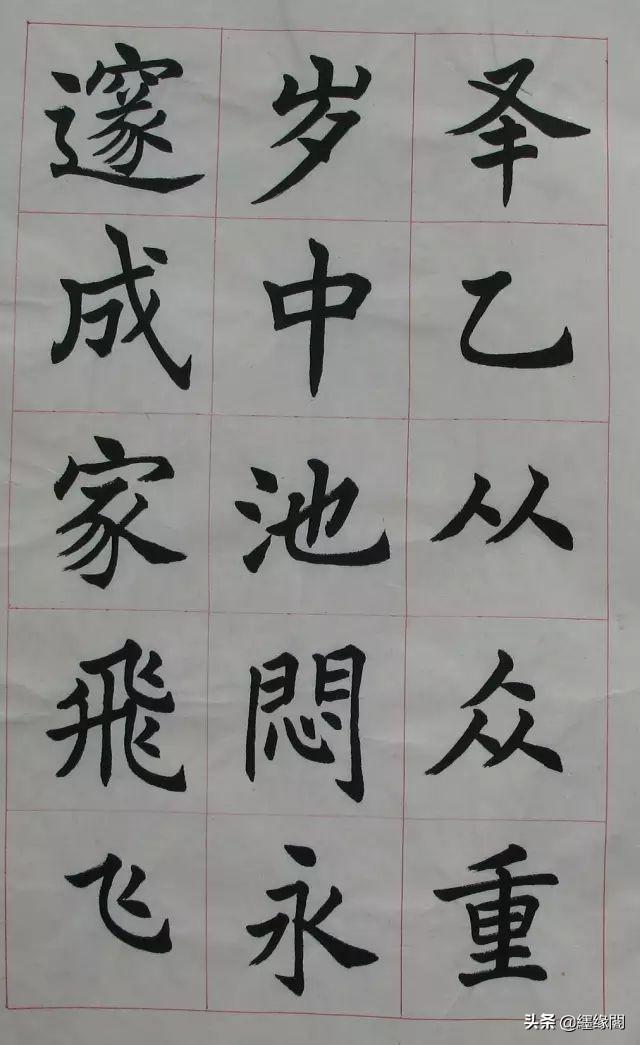 𠬤乙从众重
岁中池悶永
邃成家飛飞
头条 @缘閣